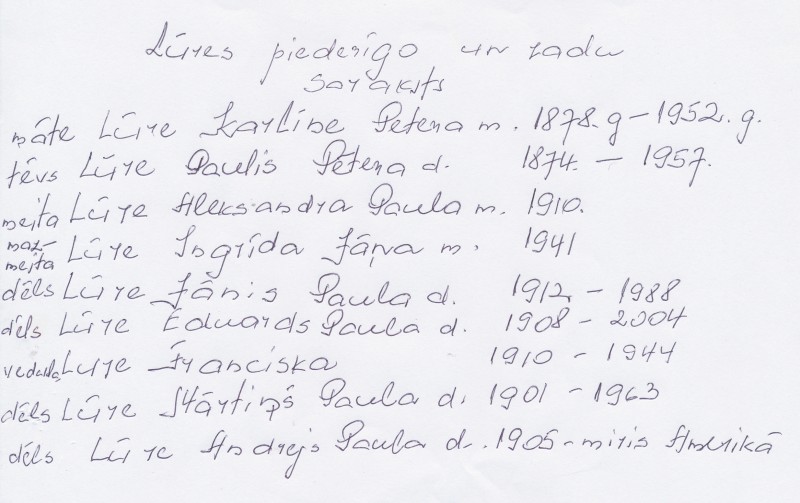 Lūres piederīgo un radu
saraksts
māte Lūre Karlīne Pētera m. 1878.g – 1952.g.
tēvs Lūre Paulis Pētera d. 1874. – 1957.
meita Lūre Aleksandra Paula m. 1910.
maz-
meita Lūre Ingrīda Jāņa m. 1941
dēls Lūre Jānis Paula d. 1912 – 1988
dēls Lūre Eduards Paula d. 1908 – 2004
vedekla Lūre Franciska 1910 – 1944
dēls Lūre Mārtiņš Paula d. 1901 – 1963
dēls Lūre Andrejs Paula d. 1905 – miris Amerikā